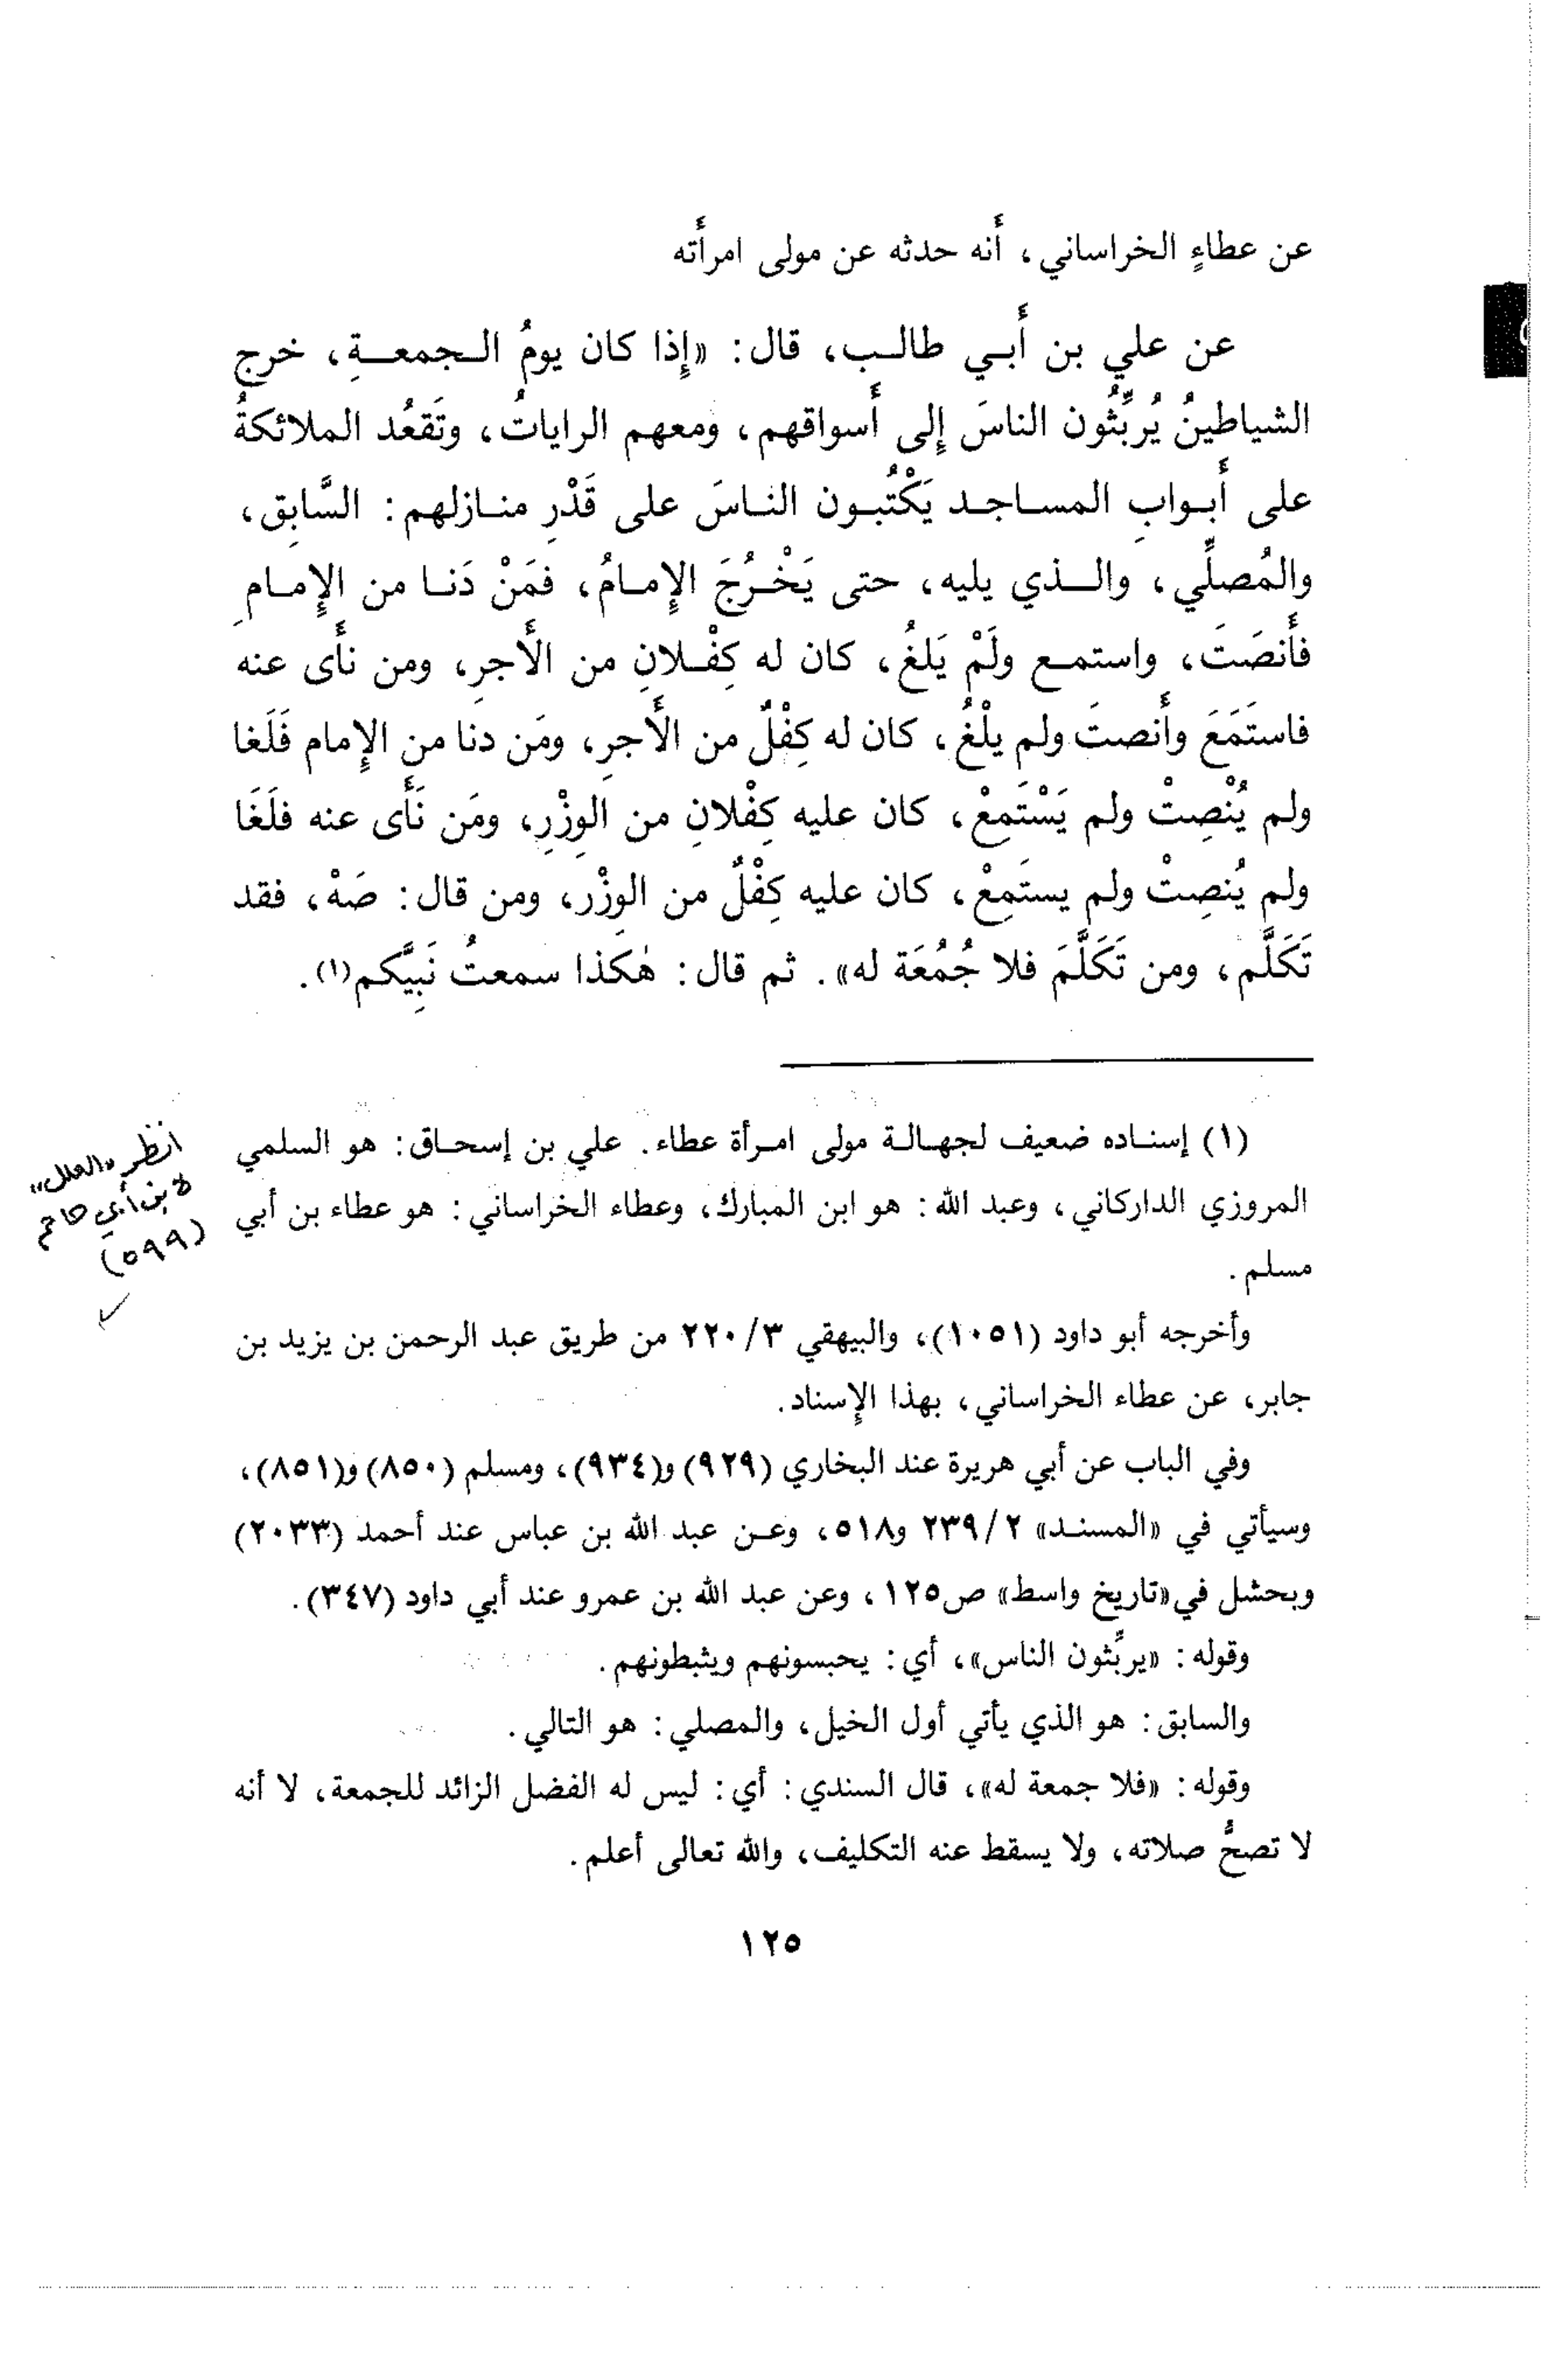 عن عطاءٍ الخراساني، أَنه حدثه عن مولى امرأَته
عن علي بن أَبي طالب، قال: «إِذا كان يومُ الجمعةِ، خرج
الشياطينُ يُربِّثُون الناسَ إِلى أَسواقهم، ومعهم الراياتُ، وتَقعُد الملائكةُ
على أَبوابِ المساجد يَكْتُبون الناسَ على قَدْرِ منازلهم: السَّابِق،
والمُصلِّي، والذي يليه، حتى يَخْرُجَ الإِمامُ، فمَنْ دَنا من الإِمامِ
فأَنصَتَ، واستمع ولَمْ يَلغُ، كان له كِفْلانِ من الأَجرِ، ومن نأَى عنه
فاستَمَعَ وأَنصتَ ولم يلْغُ، كان له كِفْلٌ من الأَجرِ، ومَن دنا من الإِمام فَلَغا
ولم يُنْصِتْ ولم يَسْتَمِعْ، كان عليه كِفْلانِ من الوِزْرِ، ومَن نَأَى عنه فلَغَا
ولم يُنصِتْ ولم يستَمِعْ، كان عليه كِفْلٌ من الوِزْر، ومن قال: صَهْ، فقد
تَكَلَّم، ومن تَكَلَّمَ فلا جُمُعَة له». ثم قال: هٰكذا سمعتُ نَبِيَّكم(١).
(١) إسناده ضعيف لجهالة مولى امرأة عطاء. علي بن إسحاق: هو السلمي
المروزي الداركاني، وعبد الله: هو ابن المبارك، وعطاء الخراساني: هو عطاء بن أبي
مسلم.
انظر «العلل»
لابن أبي حاتم
(٥٩٩)
وأخرجه أبو داود (١٠٥١)، والبيهقي ٢٢٠/٣ من طريق عبد الرحمن بن يزيد بن
جابر، عن عطاء الخراساني، بهذا الإسناد.
وفي الباب عن أبي هريرة عند البخاري (٩٢٩) و(٩٣٤)، ومسلم (٨٥٠) و(٨٥١)،
وسيأتي في «المسند» ٢٣٩/٢ و٥١٨، وعن عبد الله بن عباس عند أحمد (٢٠٣٣)
وبحشل في «تاريخ واسط» ص١٢٥، وعن عبد الله بن عمرو عند أبي داود (٣٤٧).
وقوله: «يربِّثون الناس»، أي: يحبسونهم ويثبطونهم.
والسابق: هو الذي يأتي أول الخيل، والمصلي: هو التالي.
وقوله: «فلا جمعة له»، قال السندي: أي: ليس له الفضل الزائد للجمعة، لا أنه
لا تصحُّ صلاته، ولا يسقط عنه التكليف، والله تعالى أعلم.
١٢٥